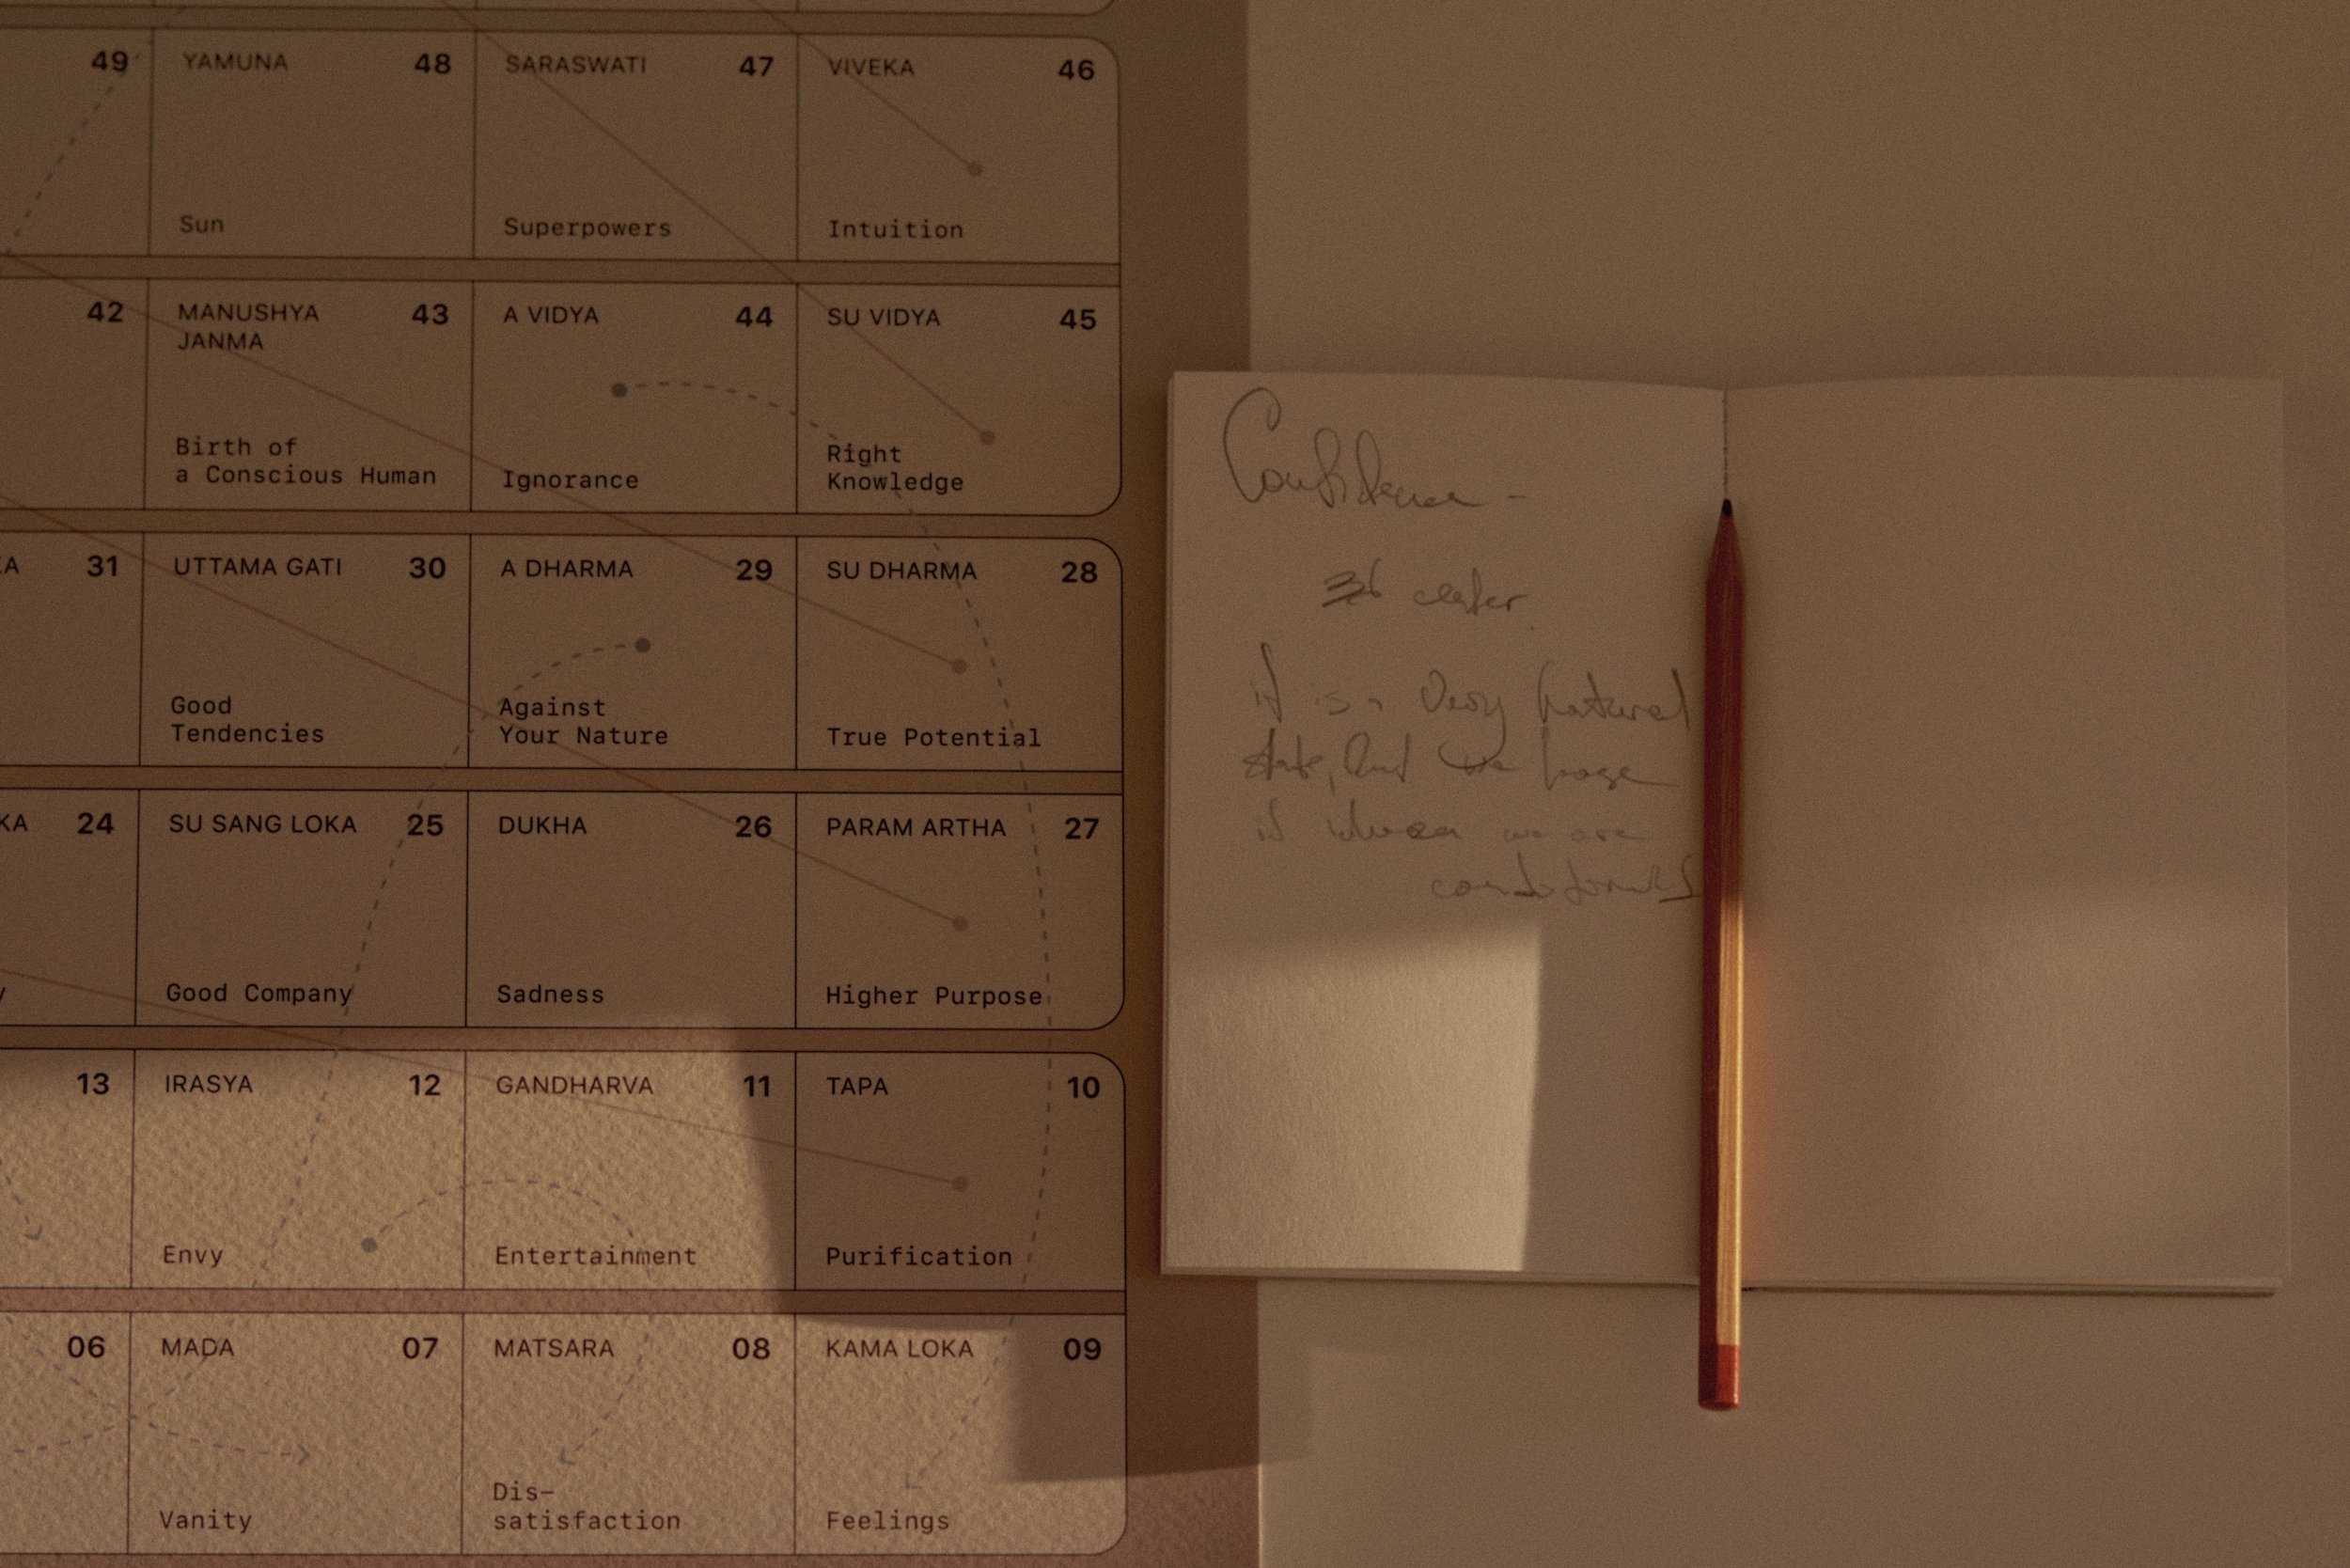 49 YAMUNA 48 SARASWATI 47 VIVEKA 46
Sun Superpowers Intuition
42 MANUSHYA 43 A VIDYA 44 SU VIDYA 45
JANMA
Birth of
a Conscious Human
Ignorance
Right
Knowledge
31 UTTAMA GATI 30 A DHARMA 29 SU DHARMA 28
Good
Tendencies
Against
Your Nature
True Potential
24 SU SANG LOKA 25 DUKHA 26 PARAM ARTHA 27
Good Company Sadness Higher Purpose
13 IRASYA 12 GANDHARVA 11 TAPA 10
Envy Entertainment Purification
06 MADA 07 MATSARA 08 KAMA LOKA 09
Vanity
Dis-
satisfaction
Feelings
Confidence -
it is a very natural
state, but we
it when we are